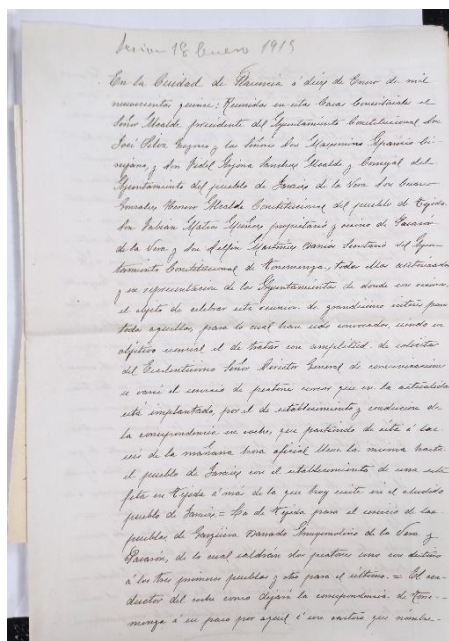 Sesion 18 Enero 1915
En la Ciudad de Plasencia á diez de Enero de mil
novecientos quince: Reunidos en esta Casa Consistorial el
Señor Alcalde presidente del Ayuntamiento Constitucional Don
José Silva y los Señores Don Maximino Aparicio Ci-
rujano, y Don Fidel Arjona Sanchez Alcalde y Concejal del
Ayuntamiento del pueblo de Jaraiz de la Vera Don
Gonzalez Alcalde Constitucional del pueblo de Tejeda
Don Fabian Mateos propietario y vecino de Pasarón
de la Vera y Don Delfin Martinez Secretario del Ayun-
tamiento Constitucional de Toremenga, todos ellos autorizados
y en representación de los Ayuntamientos de donde son vecinos,
el objeto de celebrar esta reunion de grandisimo interés para
todos aquellos, para lo cual han sido convocados, siendo su
objetivo esencial el de tratar con amplitud de solicitar
del Excelentisimo Señor Director General de comunicaciones
se varie el servicio de peatones correos que en la actualidad
está implantado, por el de establecimiento y conduccion de
la correspondencia en coche, que partiendo de ésta á las
seis de la mañana hora oficial lleve la misma hasta
el pueblo de Jaraiz con el establecimiento de una esta
feta en Tejeda á más de la que hoy existe en el aludido
pueblo de Jaraiz = La de Tejeda para el servicio de los
pueblos de Garguera Barrado Arroyomolinos de la Vera y
Pasarón, de la cual saldrán dos peatones uno con destino
á los tres primeros pueblos y otro para el último. = El con-
ductor del coche correo dejará la correspondencia de Tore-
menga á su paso por aquel ó su cartero que nombre-